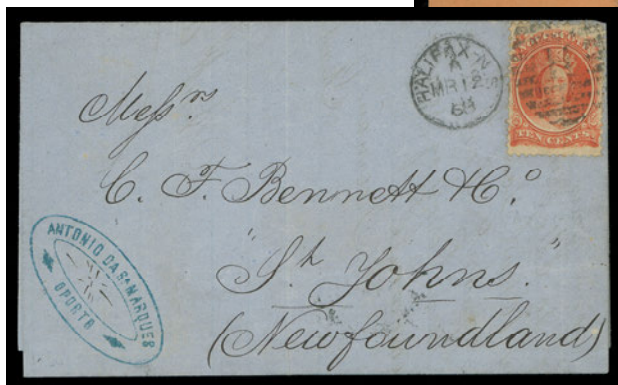 HALIFAX·N·S
A
MR 12
68
TEN CENTS
Messrs
C. F. Bennett & Co.
"St Johns."
(Newfoundland)
ANTONIO DA Sa MARQUES
OPORTO